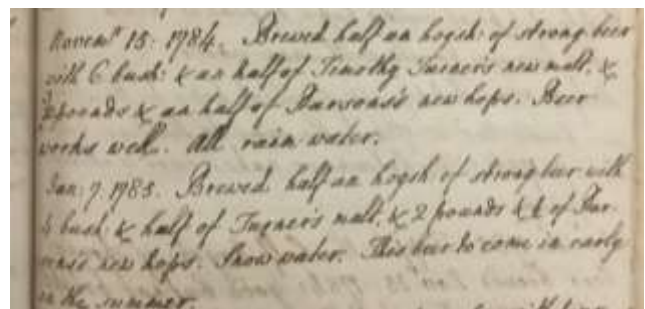 Novemr 15: 1784. Brewed half an hogsh: of strong beer
with 6 bush: & an half of Timothy Turner's new malt, &
pounds & an half of Parsons's new hops. Beer
works well. All rain water.
Jan: 7. 1785. Brewed half an hogsh of strong beer with
bush & half of Turner's malt, & 2 pounds & of Par-
sons's new hops. Snow water. This beer to come in early
in the summer.